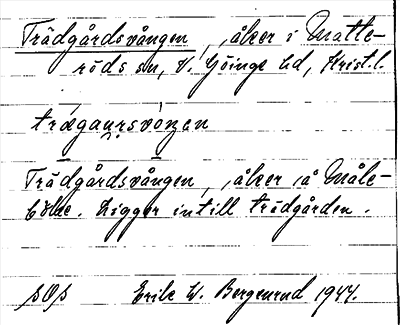 Trädgårdsvången, åker i Matte-
röds sn, V. Göinge hd, Krist. l.
trægaursvɔŋen
Trädgårdsvången, åker å Måle-
bölle. Ligger intill trädgården.
SOS Erik W. Bergenrud 1944.